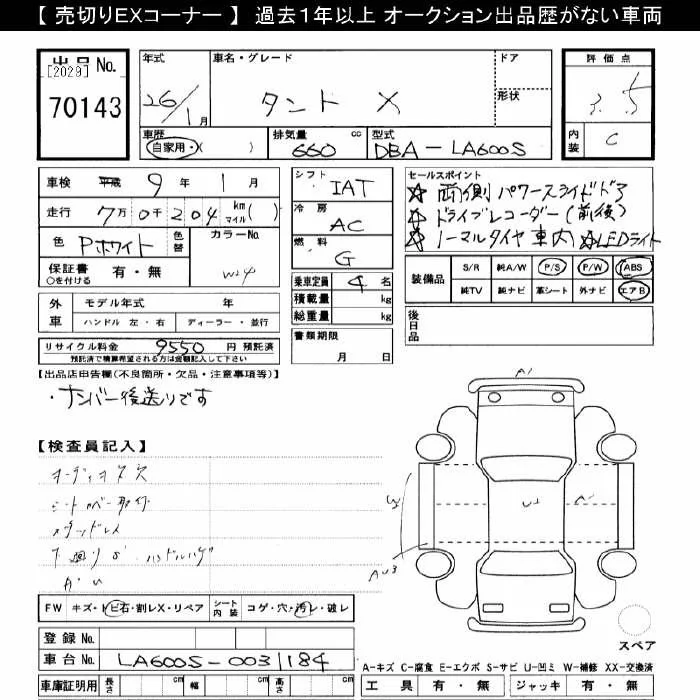 【 売切りEXコーナー 】 過去1年以上 オークション出品歴がない車両
出品 No.
[2029]
70143
年式
26/1月
車名・グレード
タント X
ドア
形状
評価点
3.5
内装
C
車歴
自家用・( )
排気量 cc
660
型式
DBA-LA600S
車検 平成 9年 1月
走行 7万0千204 km マイル( )
色 Pホワイト
色替
カラーNo.
W24
保証書 有・無
○を付ける
外車
モデル年式 年
ハンドル 左・右 ディーラー・並行
リサイクル料金 9550 円 預託済
預託済で積算希望される方は金額記入して下さい
シフト
IAT
冷房
AC
燃料
G
乗車定員 4 名
積載量 kg
総重量 kg
書類期限
月 日
セールスポイント
☆ 両側パワースライドドア
☆ ドライブレコーダー(前後)
☆ ノーマルタイヤ車内 ☆LEDライト
装備品
S/R 純A/W P/S P/W ABS
純TV 純ナビ 革シート 外ナビ エアB
後日品
【出品店申告欄(不良箇所・欠品・注意事項等)】
・ナンバー後送りです
【検査員記入】
シートカバー取付
FW キズ・トビ石・割レX・リペア
シート内装 コゲ・穴・汚レ・破レ
登録 No.
車台 No. LA600S-0031184
車庫証明用 長さ cm 幅 cm 高さ cm
A1
スペア
A-キズ C-腐食 E-エクボ S-サビ U-凹ミ W-補修 XX-交換済
工具 有・無 ジャッキ 有・無